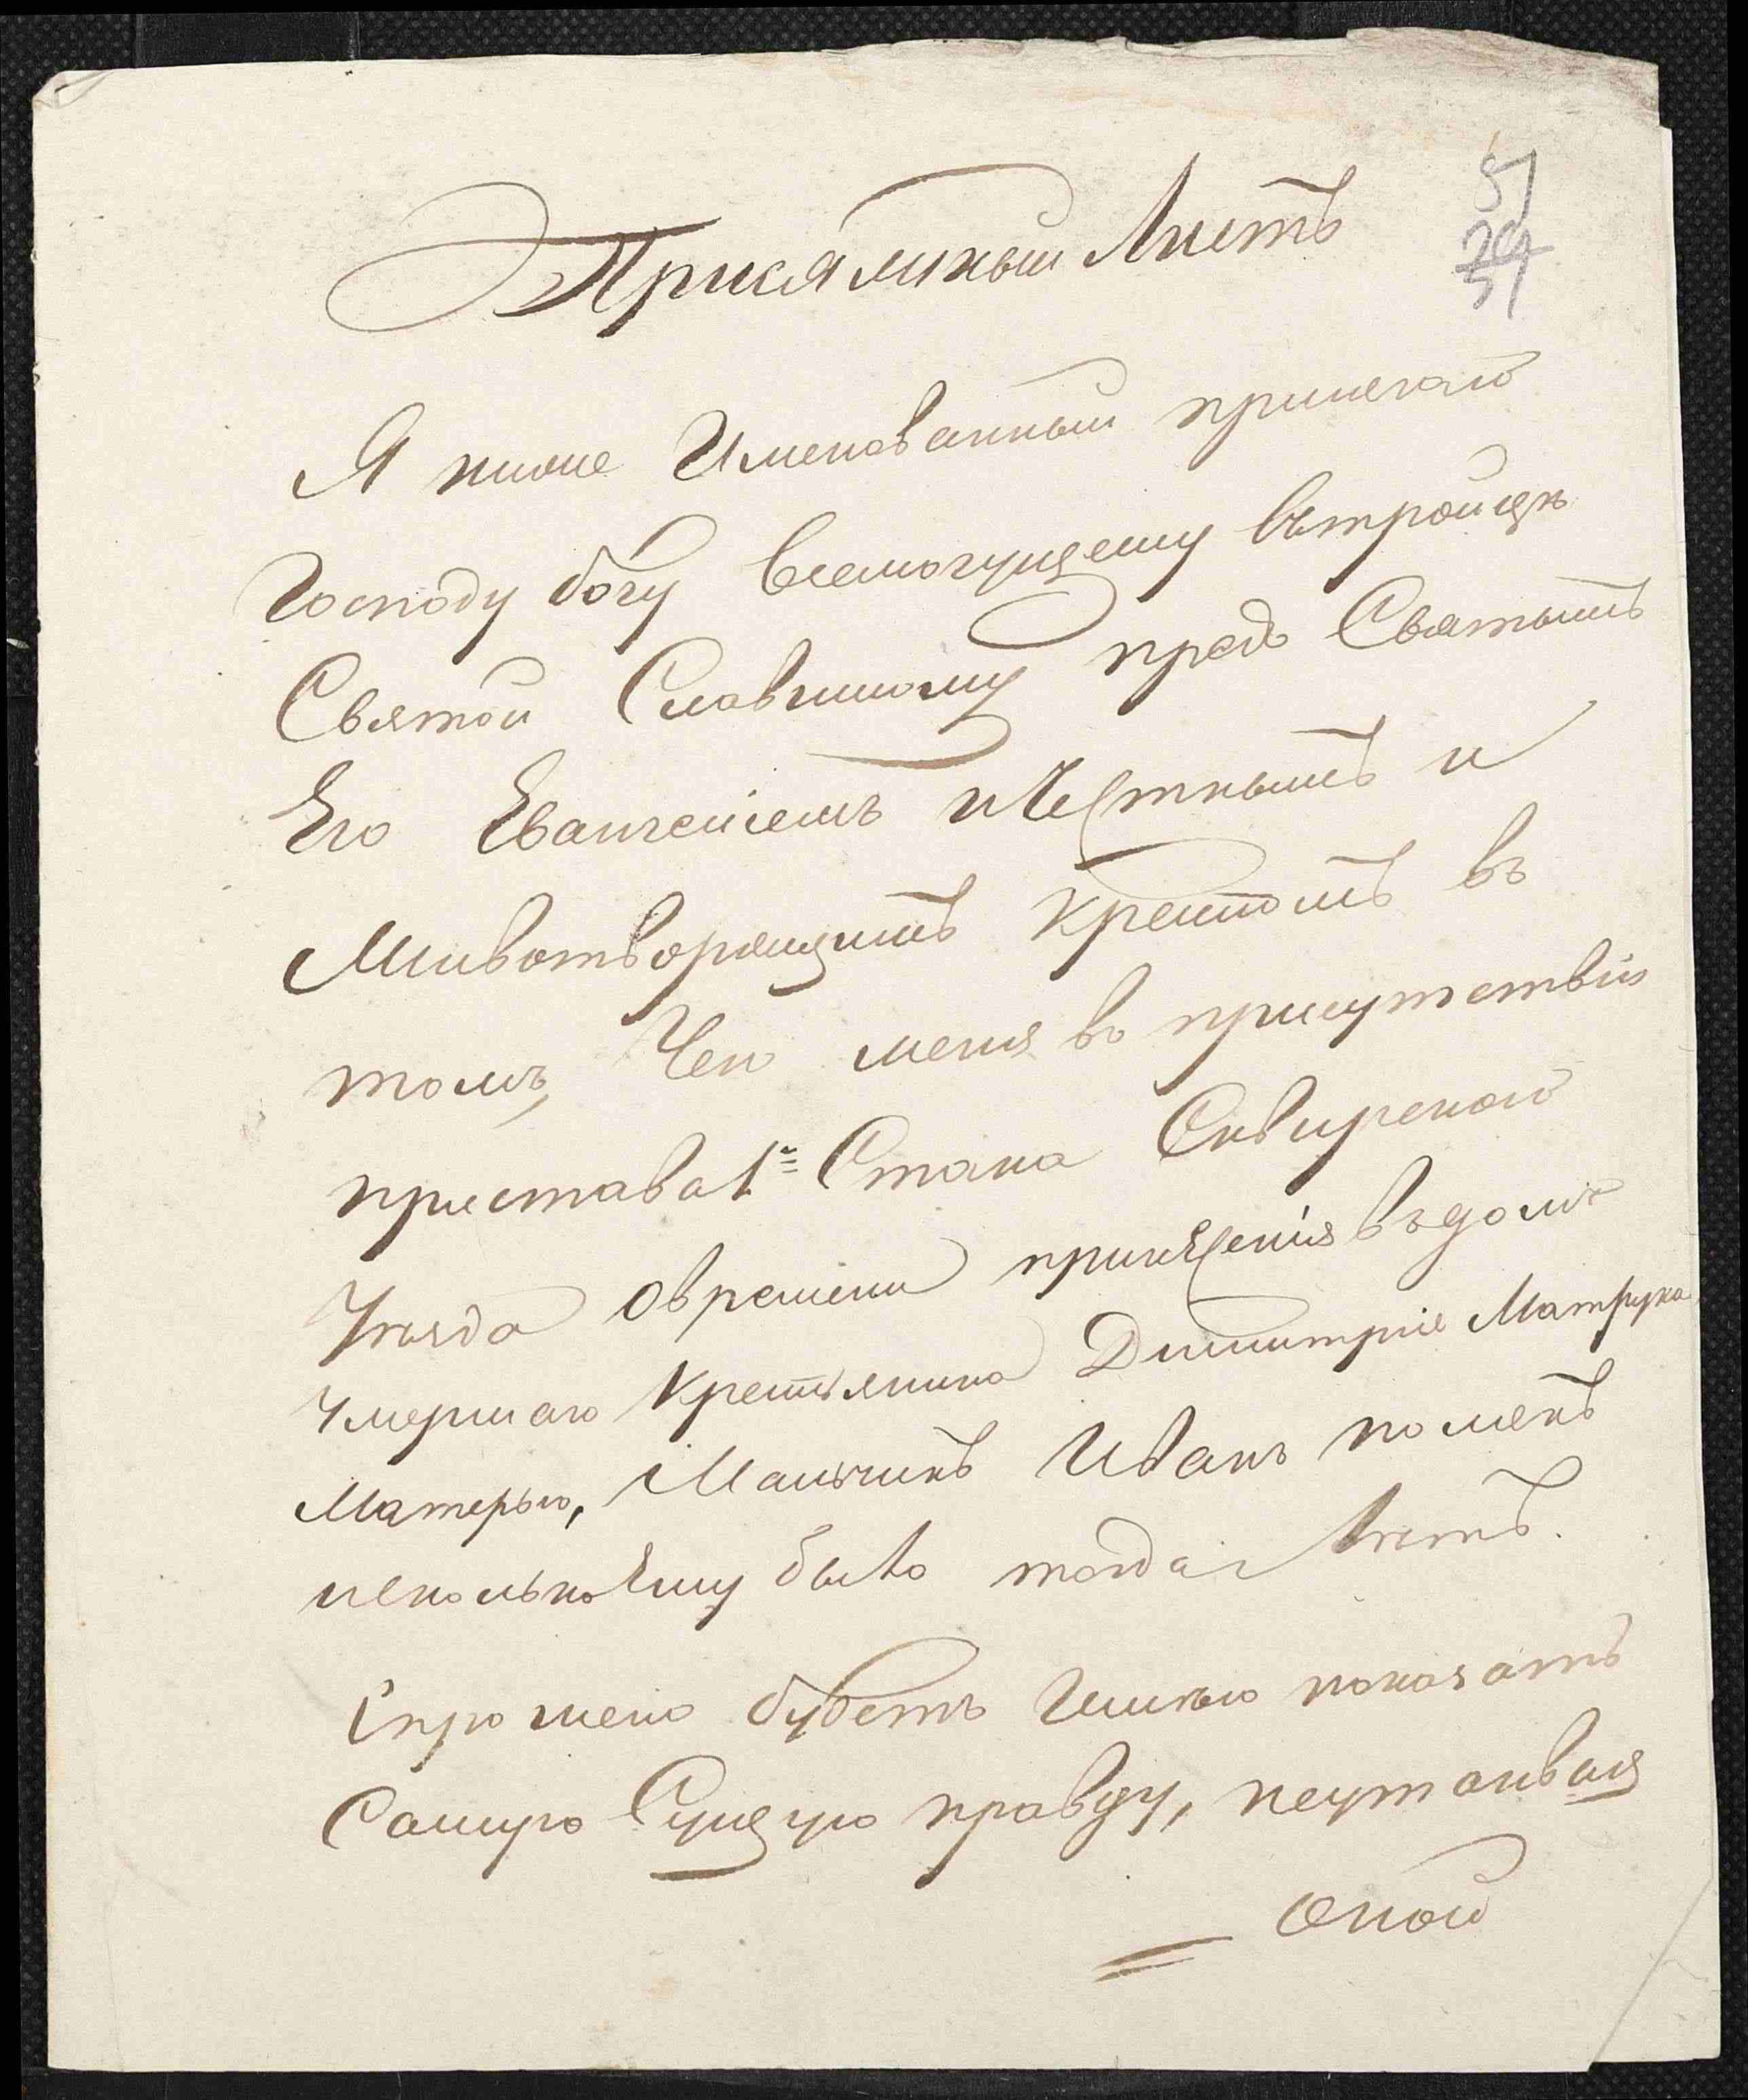 51
29
51
Присяжный Листъ
Я ниже Именованный присягаю
Господу богу всемогущему вътройцѣ
Святой Славимому предъ Святымъ
Его Евангелiемъ иЧестнымъ и
Животворящимъ Крестомъ въ
томъ, Чего меня въ присутствiи
пристава 1го Стана Сквирскаго
Уѣзда овремени принесенiя въдомъ
Умершаго Крестьянина Димитрiя Матрука
Матерью, Мальчикъ Иванъ
исколькоЕму было тогда лѣтъ.
Спрошено будетъ Имѣю показать
Самую Сущую правду, неутаивая
оной